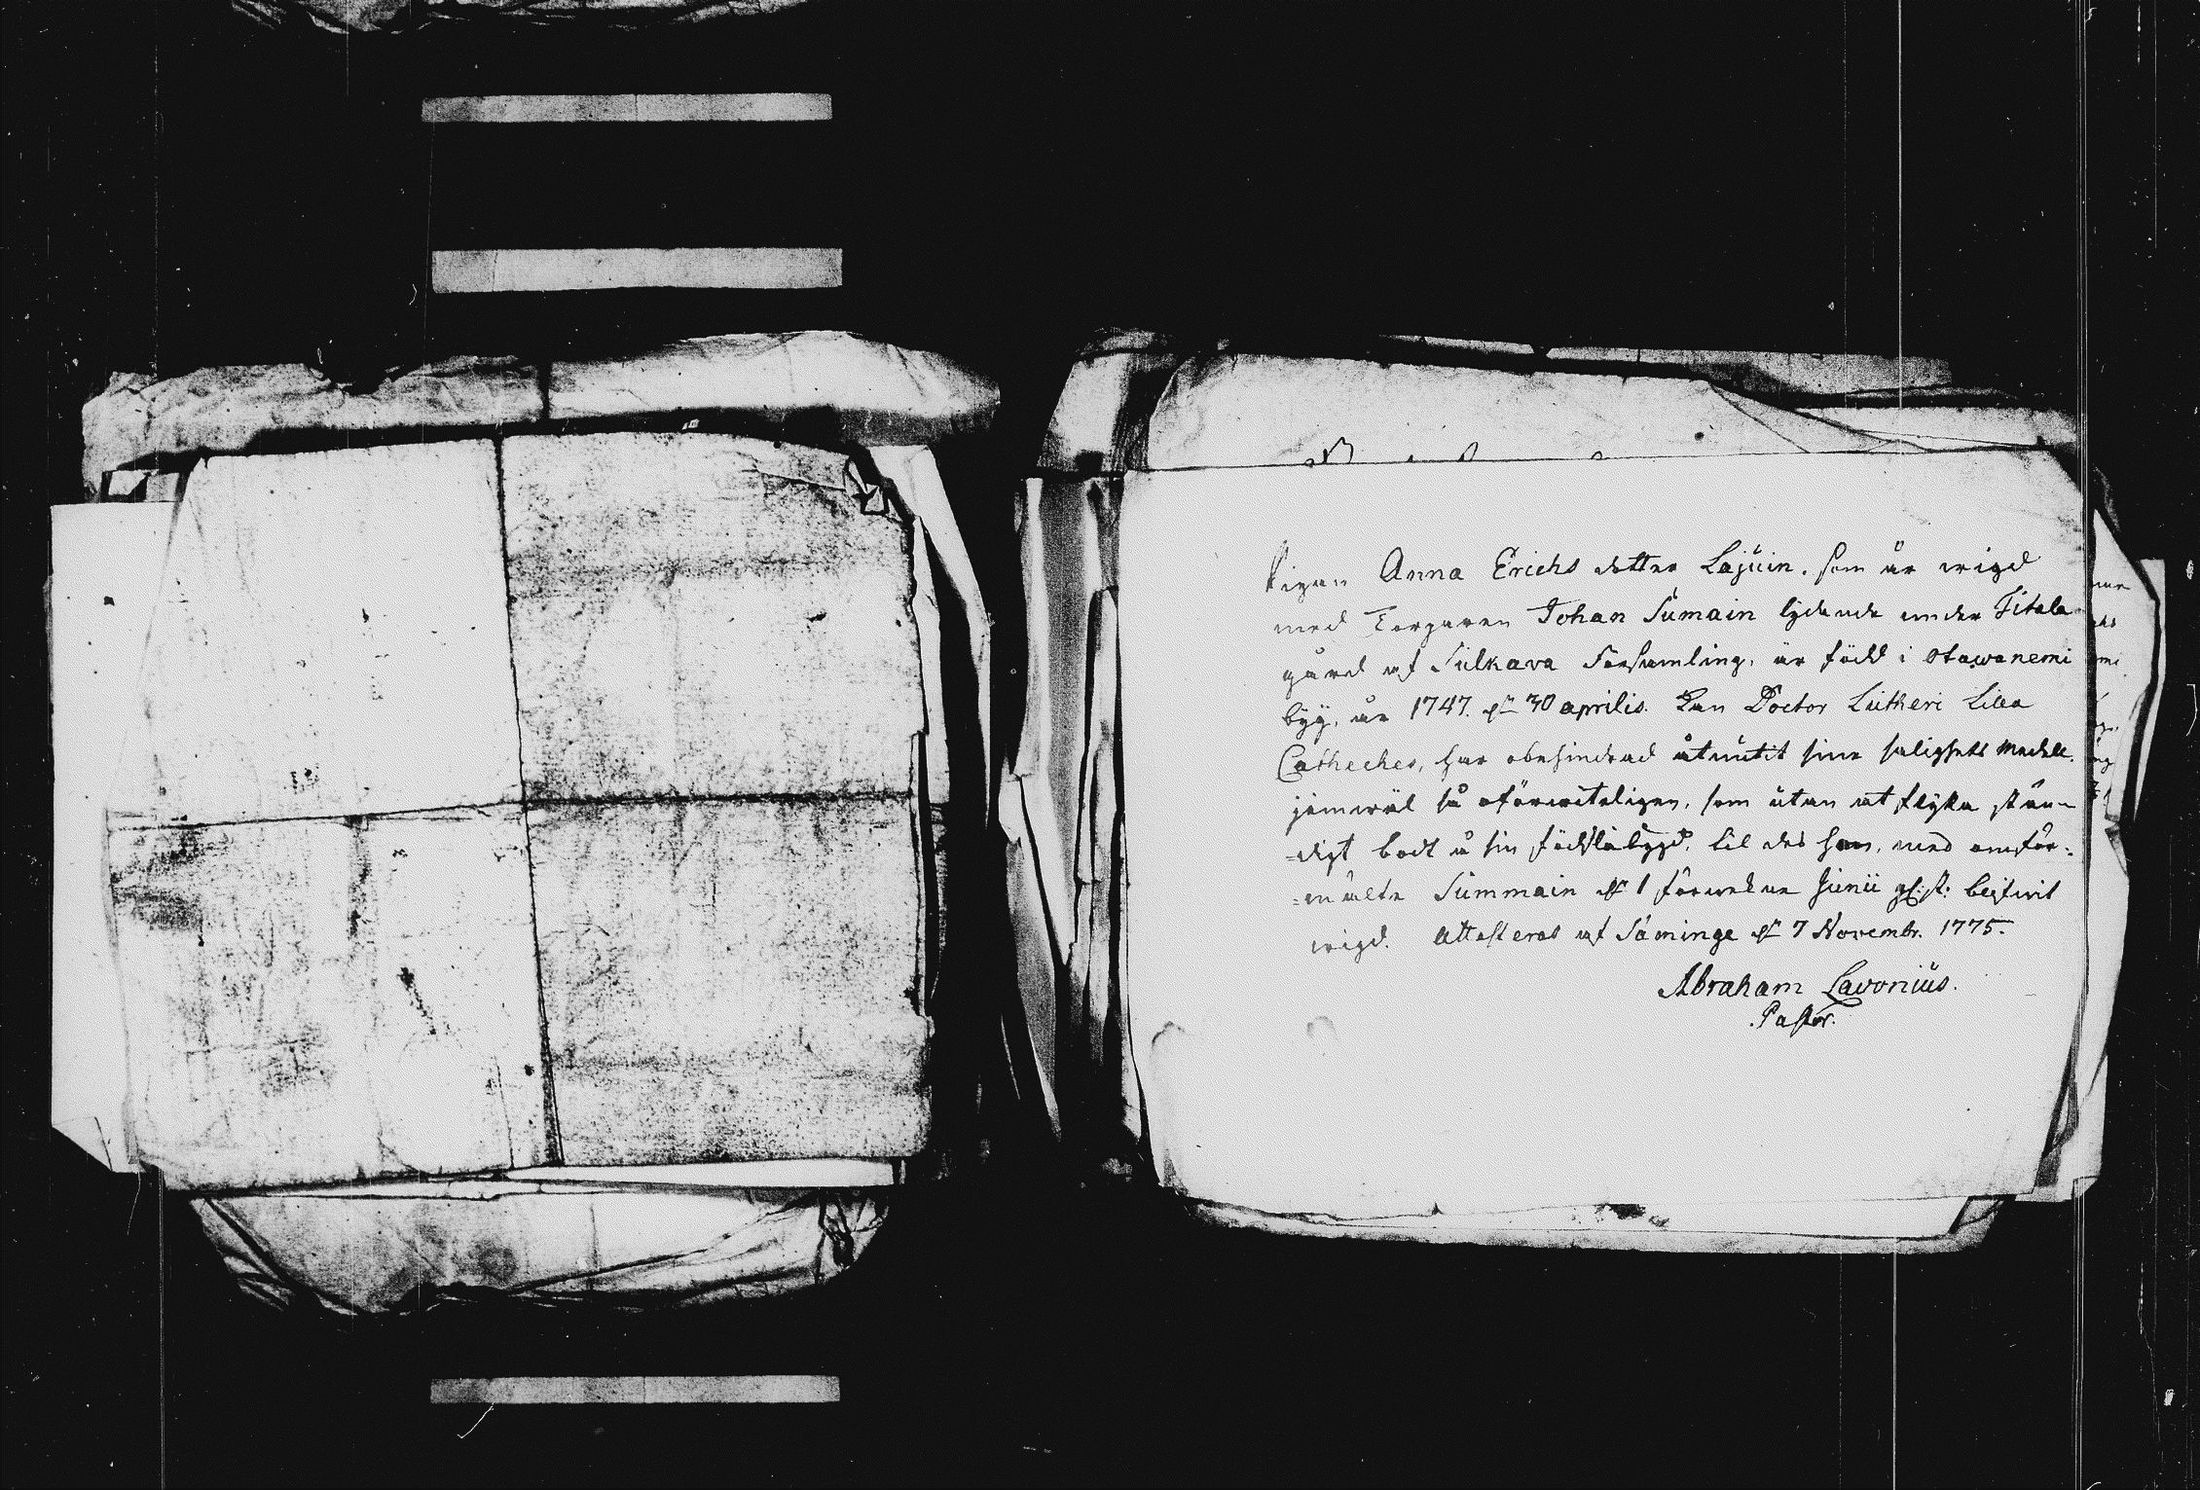 Pigan Anna Erichs dotter Lajuin, som är wigd
med Torparen Johan Sumain lydande under Fitala
gård af Sulkava Församling, är född i Otawanemi
byy, år 1747. dn 30 aprilis. Kan Doctor Lutheri Lilla
Catheches, har obehindrad åtnutit sine salighets medell.
jämwäl så oförwiteligen, som utan at flyta stän-
=digt bodt å sin födslobygd, til des hon, med omför=
=mälte Summain dn 1 förwekne Junii blifwit
wigd. Attesteras af Säminge dn 7 Novembr. 1775.
Abraham Lavonius.
Pastor.